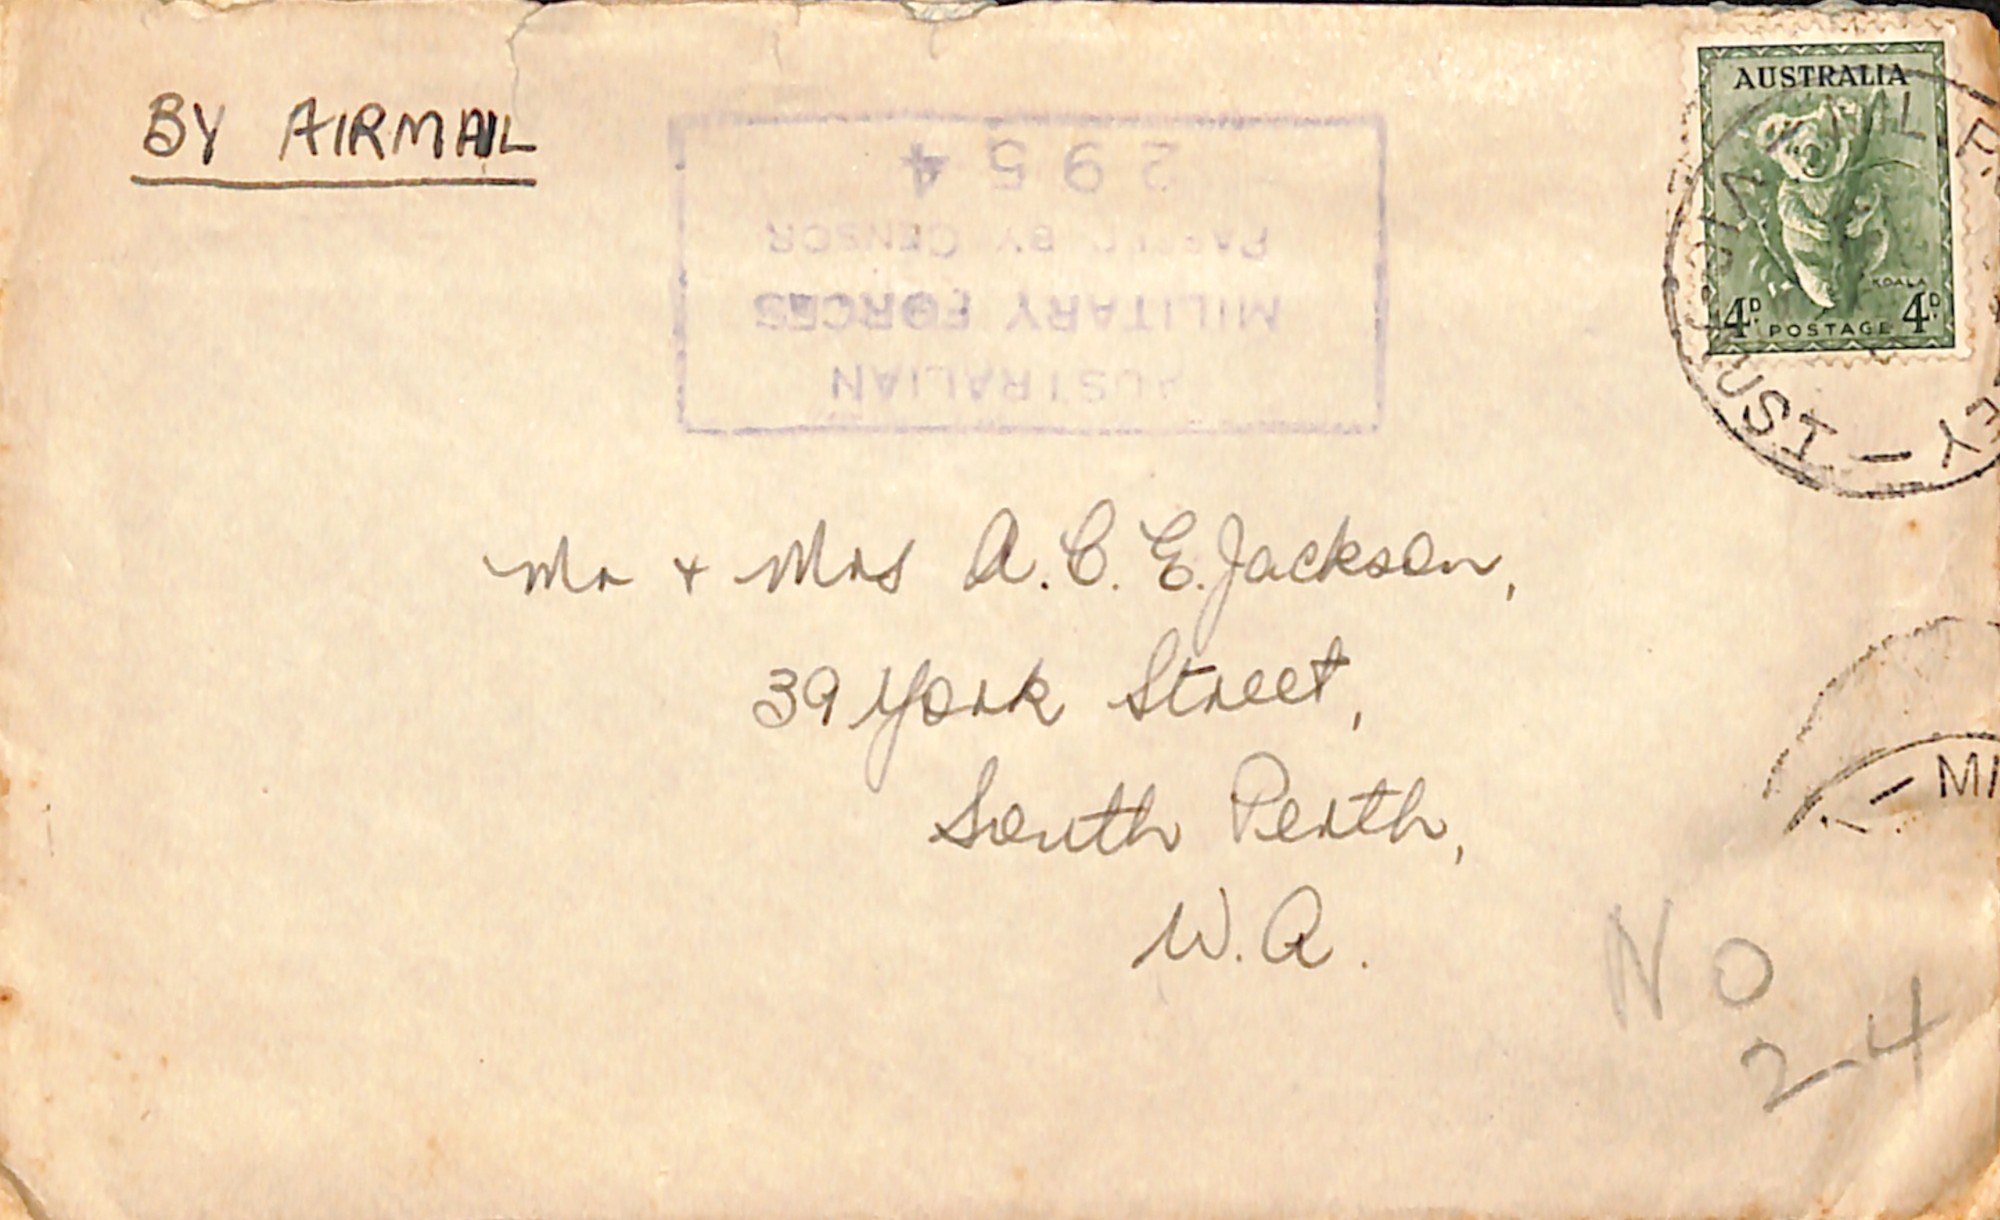 BY AIRMAIL
AUSTRALIAN
MILITARY FORCES
PASSED BY CENSOR
2954
AUSTRALIA
KOALA
4D. POSTAGE 4D.
AUST.
Mr + Mrs A. C. E. Jackson,
39 York Street,
South Perth,
W. A.
— MI
NO
24